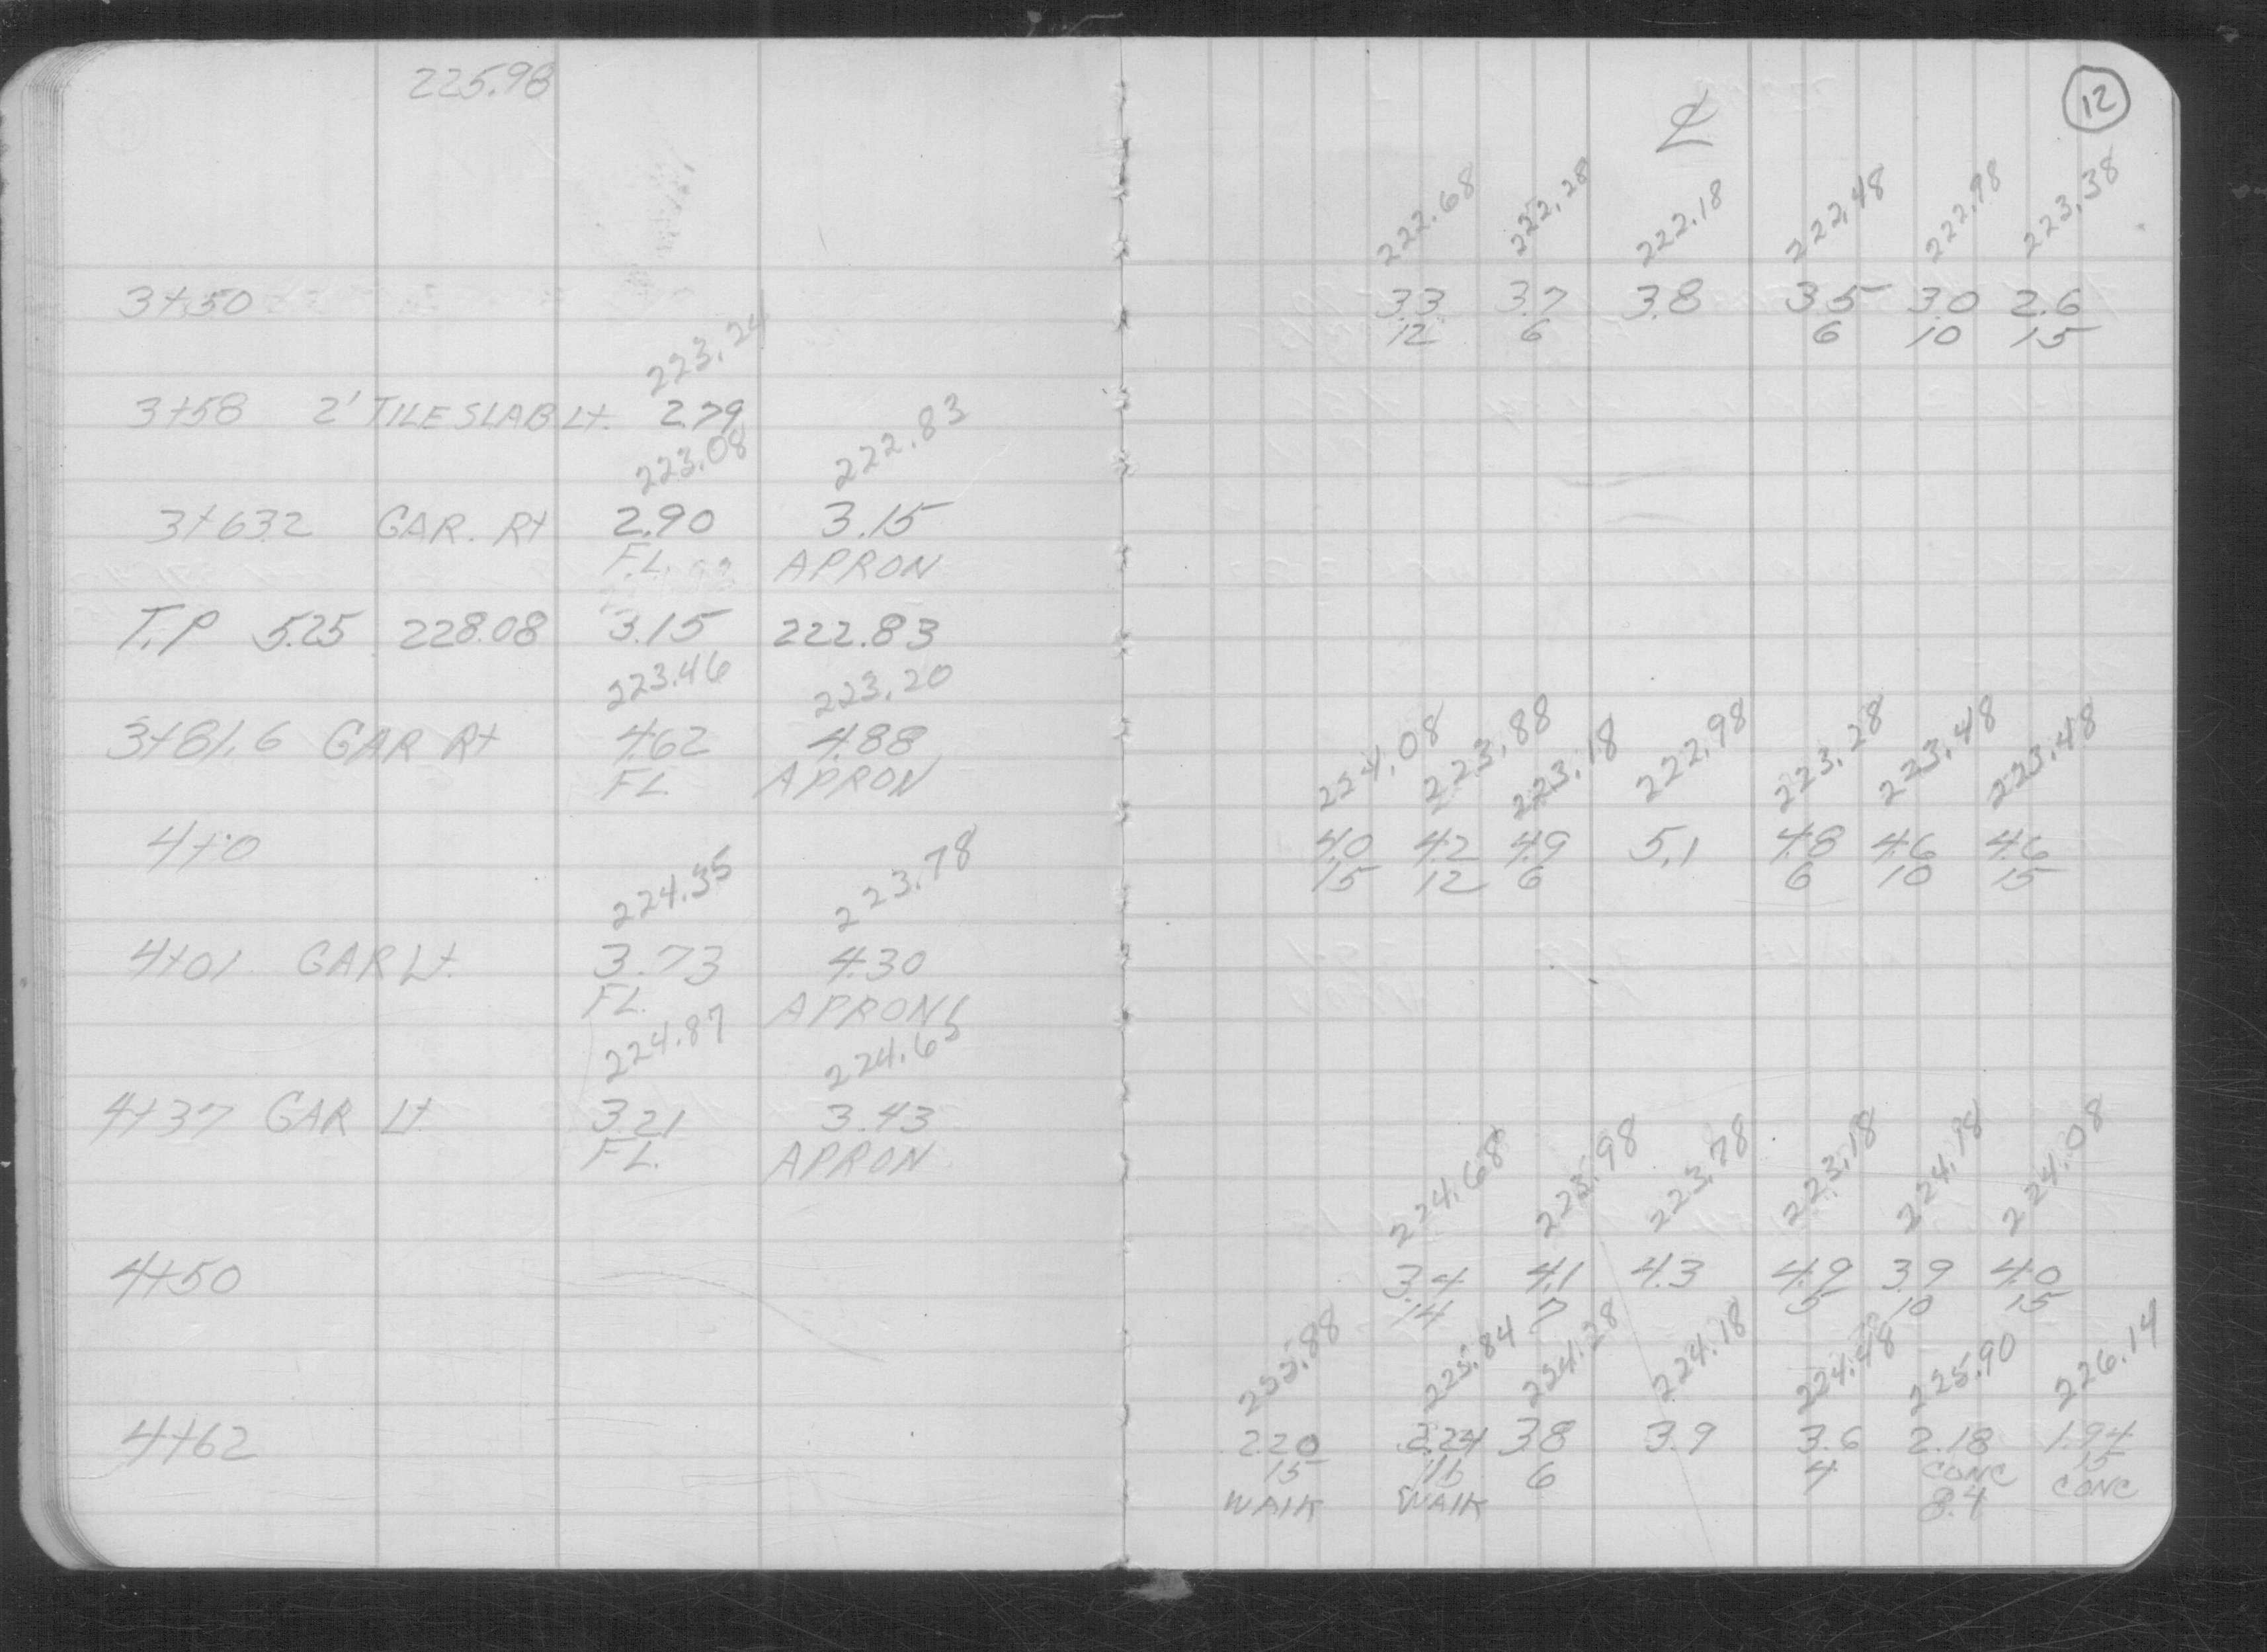 225.98
3+50
223.24
3+58 2' TILE SLAB Lt. 2.79
223.08 222.83
3+63.2 GAR. Rt 2.90 3.15
F.L. APRON
T.P 5.25 228.08 3.15 222.83
223.46 223.20
3+81.6 GAR Rt 4.62 4.88
FL APRON
4+0
224.35 223.78
4+01 GAR Lt. 3.73 4.30
FL. APRON
224.87 224.65
4+37 GAR Lt 3.21 3.43
FL. APRON
4+50
4+62
12
℄
222.68 222.28 222.18 222.48 222.98 223.38
3.3 3.7 3.8 3.5 3.0 2.6
12 6 6 10 15
224.08 223.88 223.18 222.98 223.28 223.48 223.48
4.0 4.2 4.9 5.1 4.8 4.6 4.6
15 12 6 6 10 15
224.68 223.98 223.78 223.18 224.18 224.08
3.4 4.1 4.3 4.9 3.9 4.0
14 7 5 10 15
225.88 225.84 224.28 224.18 224.48 225.90 226.14
2.20 2.24 3.8 3.9 3.6 2.18 1.94
15 6 4 CONC 15
WALK WALK 8.4 CONC